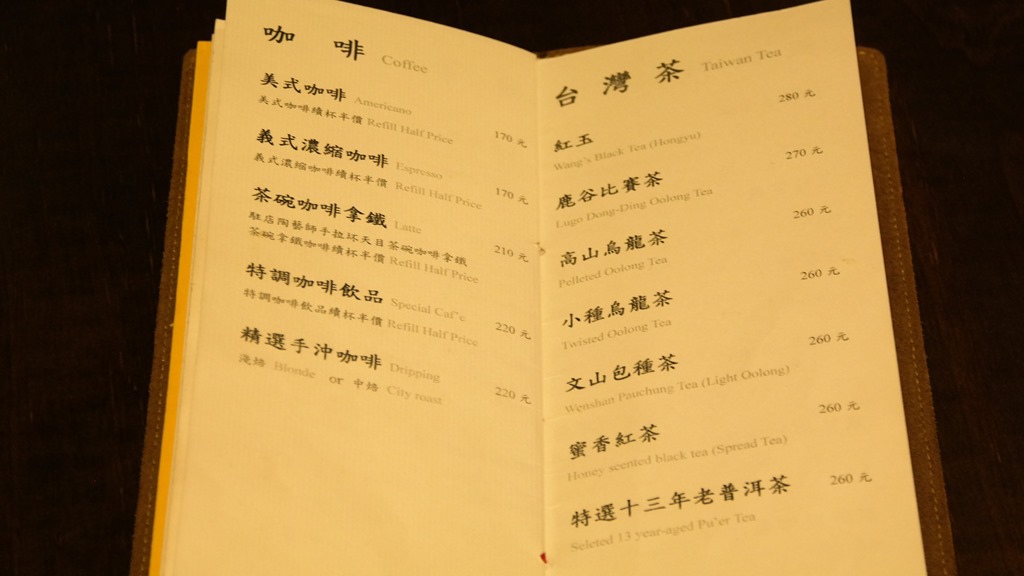 咖 啡 Coffee
美式咖啡 Americano
美式咖啡續杯半價 Refill Half Price 170 元
義式濃縮咖啡 Espresso
義式濃縮咖啡續杯半價 Refill Half Price 170 元
茶碗咖啡拿鐵 Latte
駐店陶藝師手拉坏天目茶碗咖啡拿鐵 210 元
茶碗拿鐵咖啡續杯半價 Refill Half Price
特調咖啡飲品 Special Caf'e
特調咖啡飲品續杯半價 Refill Half Price 220 元
精選手沖咖啡 Dripping
淺焙 Blonde or 中焙 City roast 220 元
台 灣 茶 Taiwan Tea
紅玉 280 元
Wang's Black Tea (Hongyu)
鹿谷比賽茶 270 元
Lugo Dong-Ding Oolong Tea
高山烏龍茶 260 元
Pelleted Oolong Tea
小種烏龍茶 260 元
Twisted Oolong Tea
文山包種茶 260 元
Wenshan Pauchung Tea (Light Oolong)
蜜香紅茶 260 元
Honey scented black tea (Spread Tea)
特選十三年老普洱茶 260 元
Seleted 13 year-aged Pu'er Tea